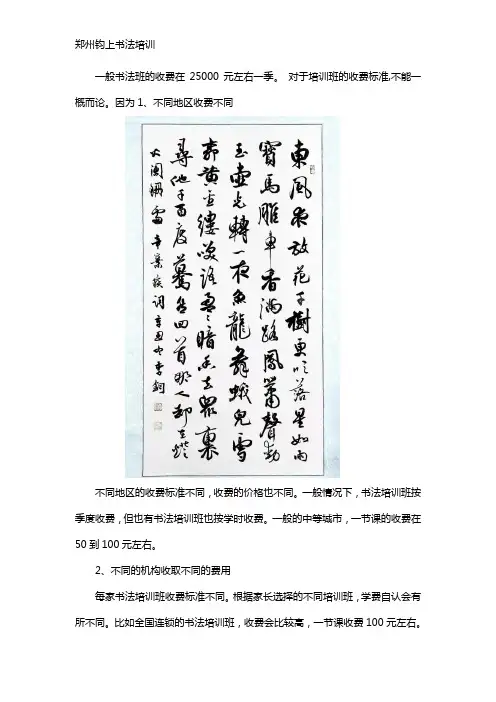 郑州钧上书法培训
一般书法班的收费在 25000 元左右一季。 对于培训班的收费标准,不能一
概而论。因为 1、不同地区收费不同
東風夜放花千樹更吹落星如雨
寶馬雕車香滿路鳳簫聲動
玉壺光轉一夜魚龍舞蛾兒雪
柳黃金縷笑語盈〻暗香去眾裏
尋他千百度驀然回首那人卻在燈
火闌珊處 辛棄疾詞 辛丑
不同地区的收费标准不同，收费的价格也不同。一般情况下，书法培训班按
季度收费，但也有书法培训班也按学时收费。一般的中等城市，一节课的收费在
50 到 100 元左右。
2、不同的机构收取不同的费用
每家书法培训班收费标准不同。根据家长选择的不同培训班，学费自认会有
所不同。比如全国连锁的书法培训班，收费会比较高，一节课收费 100 元左右。